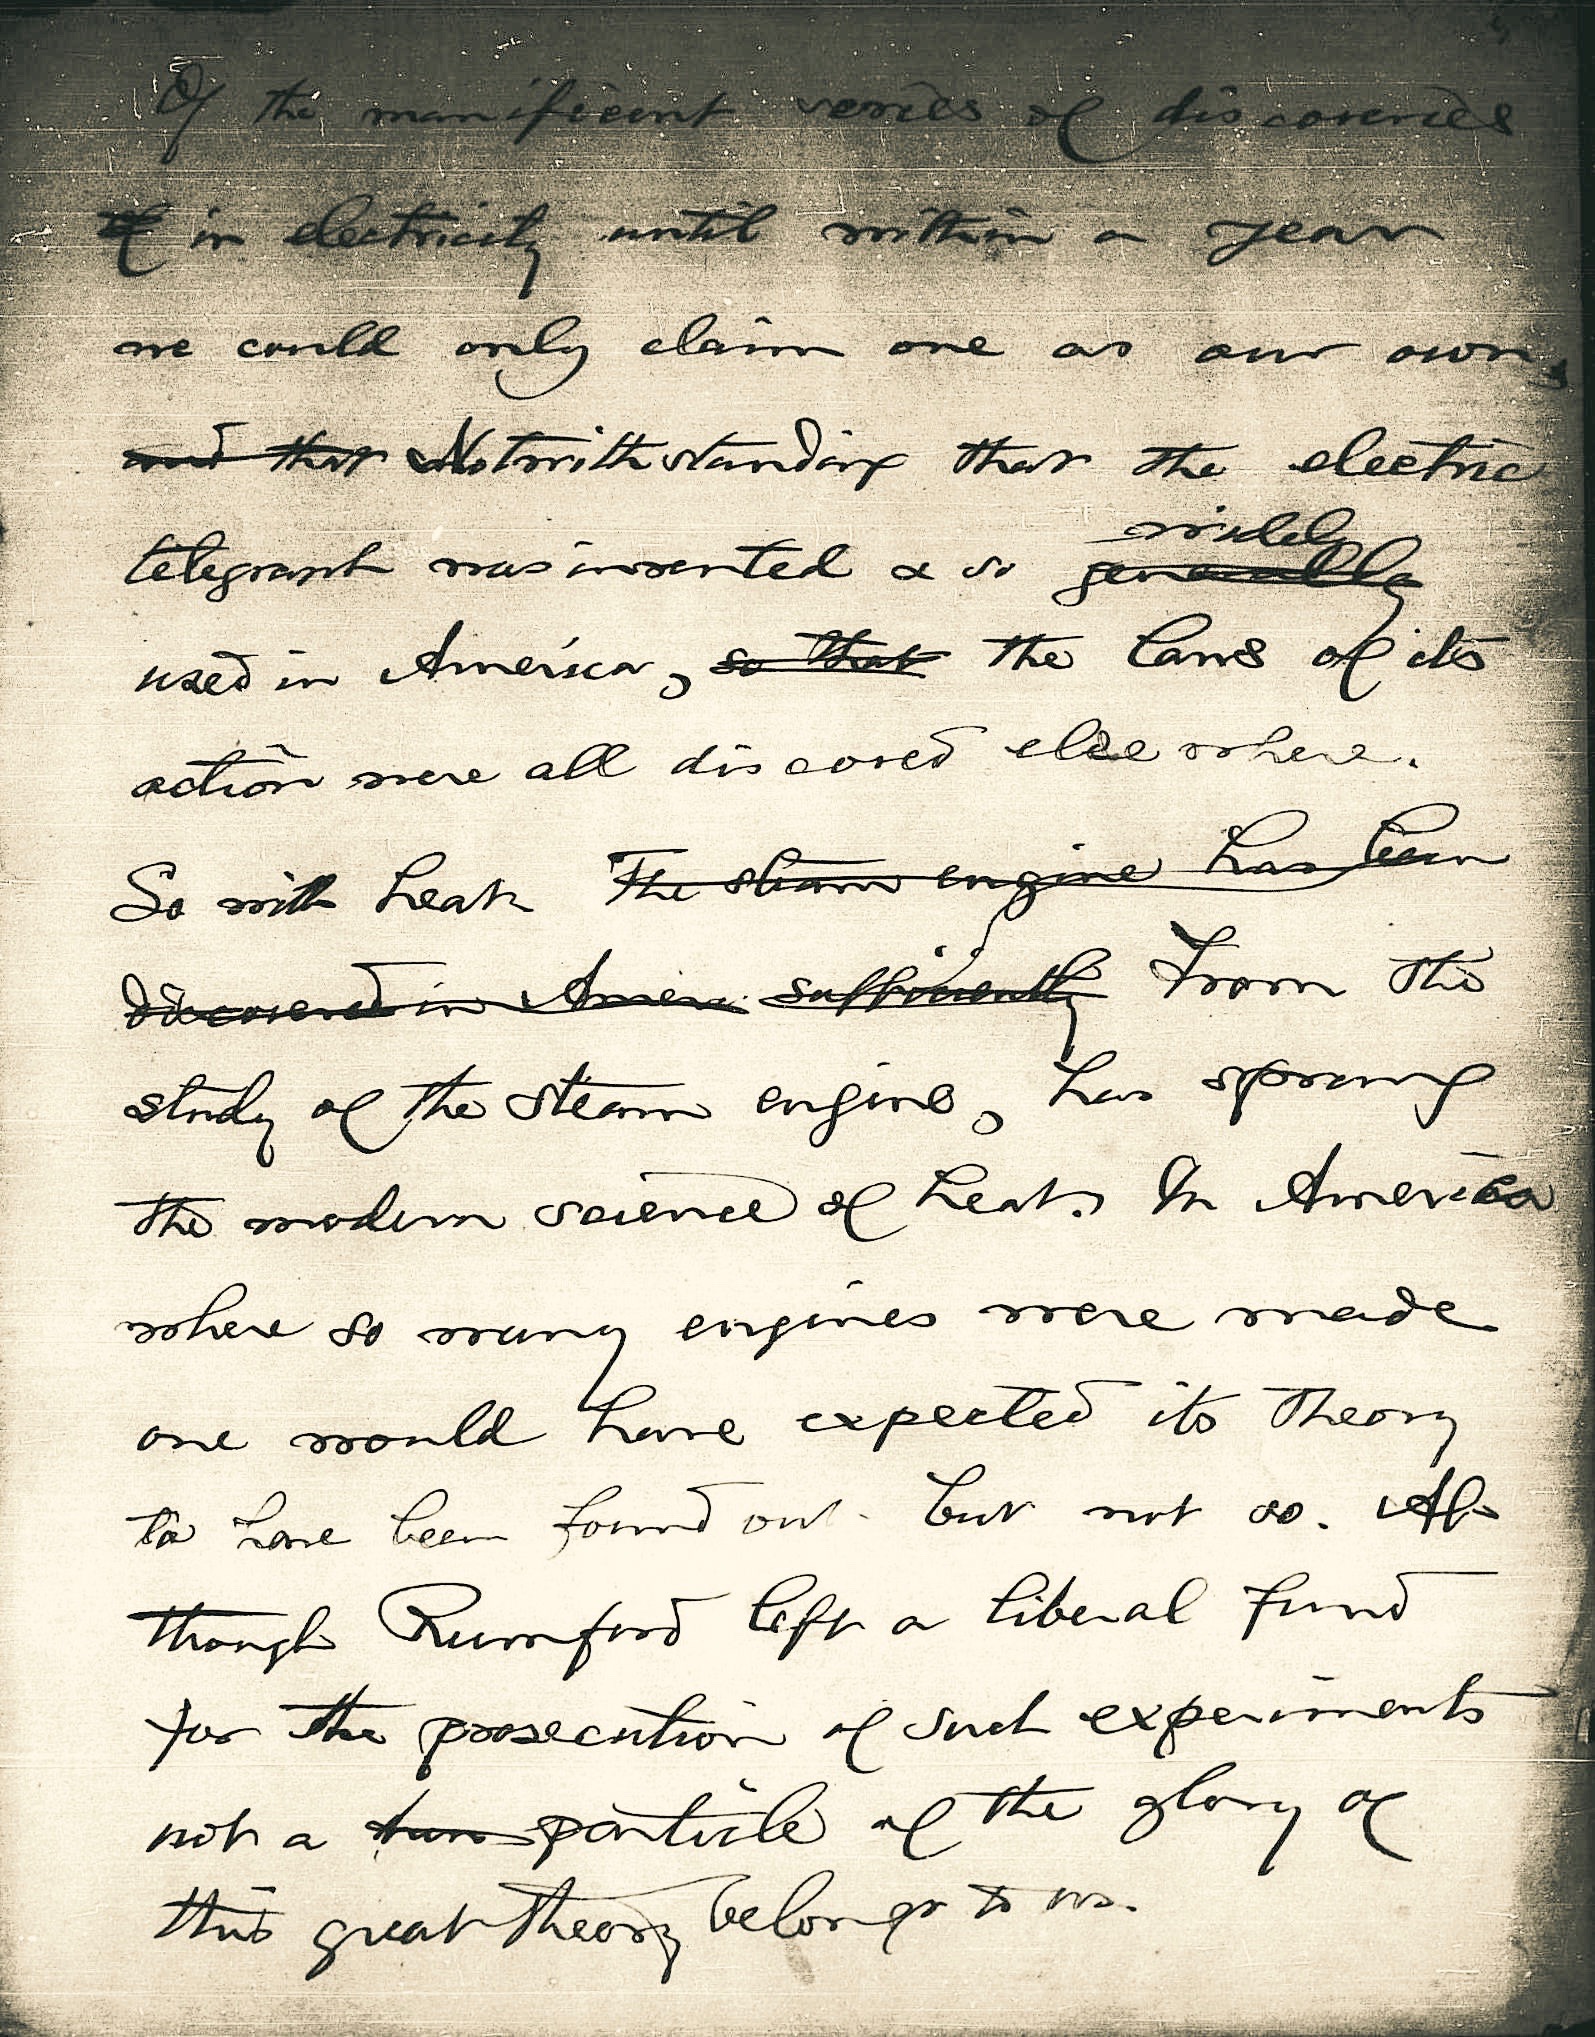 Of the manificent series of discoveries
of in electricity until within a year
we could only claim one as our own,
and that Notwithstanding that the electric
widely
telegraph was invented & so generally
used in America, so that the laws of its
action were all discoved elsewhere.
So with heat The steam engine has been
discovered in Ameri sufficiently From the
study of the steam engine, has sprung
the modern science of heat. In America
where so many engines were made
one would have expected its theory
to have been found out. but not so. Al-
though Rumford left a liberal fund
for the prosecution of such experiments
not a particle of the glory of
this great theory belongs to us.